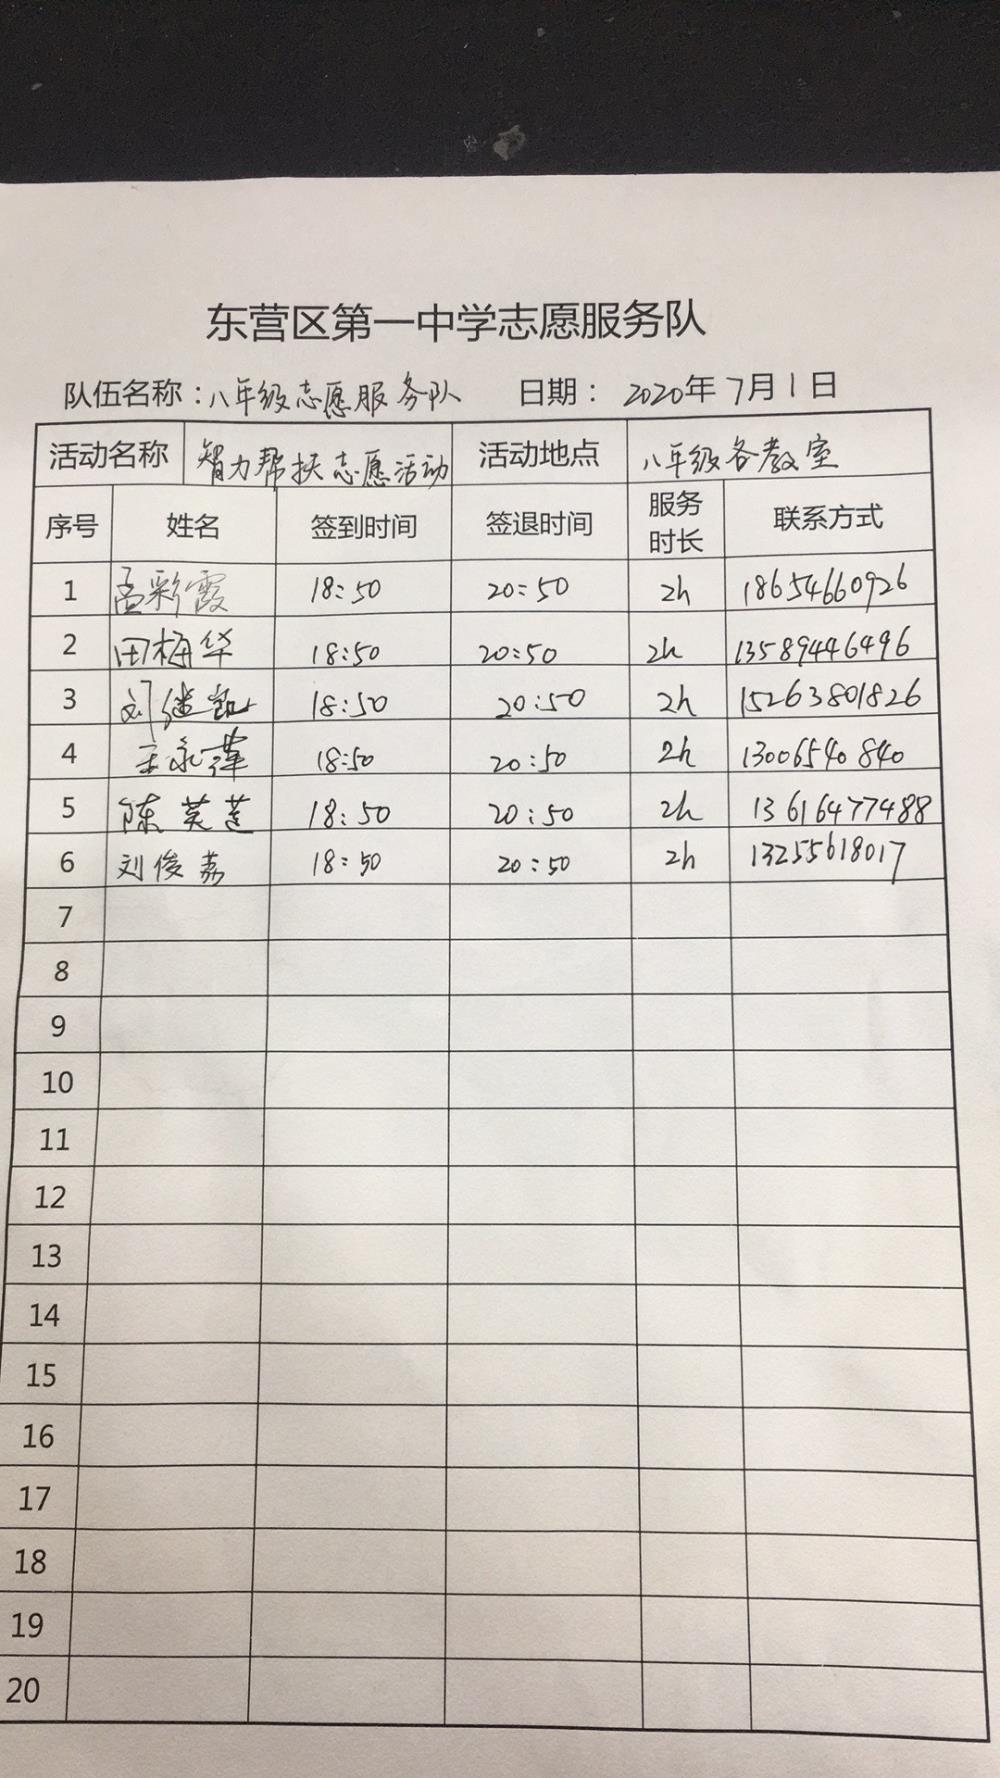 东营区第一中学志愿服务队
队伍名称：八年级志愿服务队 日期： 2020年7月1日
活动名称 智力帮扶志愿活动 活动地点 八年级各教室
序号 姓名 签到时间 签退时间 服务时长 联系方式
1 孟彩霞 18:50 20:50 2h 18654660926
2 田梅华 18:50 20:50 2h 13589446496
3 刘继凯 18:50 20:50 2h 15263801826
4 王永 18:50 20:50 2h 13006540840
5 陈英莲 18:50 20:50 2h 13616477488
6 刘俊荔 18:50 20:50 2h 13255618017
7
8
9
10
11
12
13
14
15
16
17
18
19
20